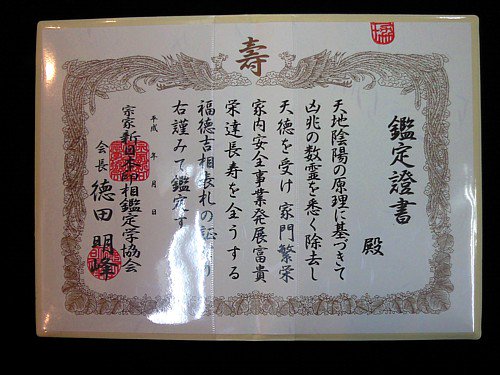 壽
鑑定證書
殿
天地陰陽の原理に基づきて
凶兆の数霊を悉く除去し
天徳を受け家門繁栄
家内安全事業発展富貴
栄達長寿を全うする
福徳吉相表札の証なり
右謹みて鑑定す
平成 年 月 日
宗家新日本印相鑑定学協会
会長 徳田明峰